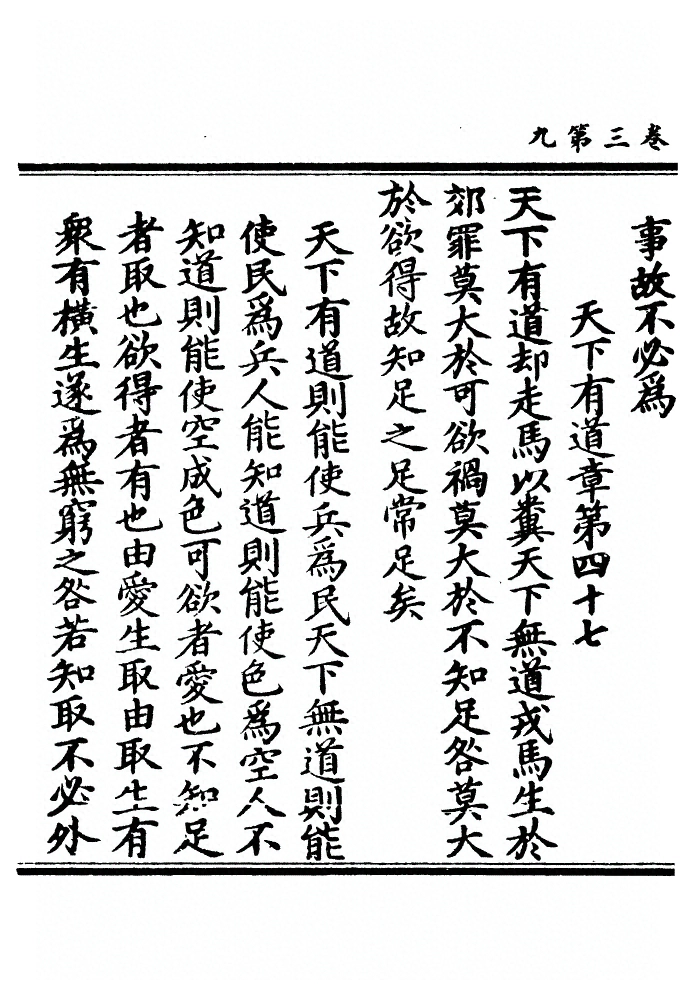 卷三第九
事故不必為
天下有道章第四十七
天下有道却走馬以糞天下無道戎馬生於
郊罪莫大於可欲禍莫大於不知足咎莫大
於欲得故知足之足常足矣
天下有道則能使兵為民天下無道則能
使民為兵人能知道則能使色為空人不
知道則能使空成色可欲者愛也不知足
者取也欲得者有也由愛生取由取生有
衆有橫生遂為無窮之咎若知取不必外